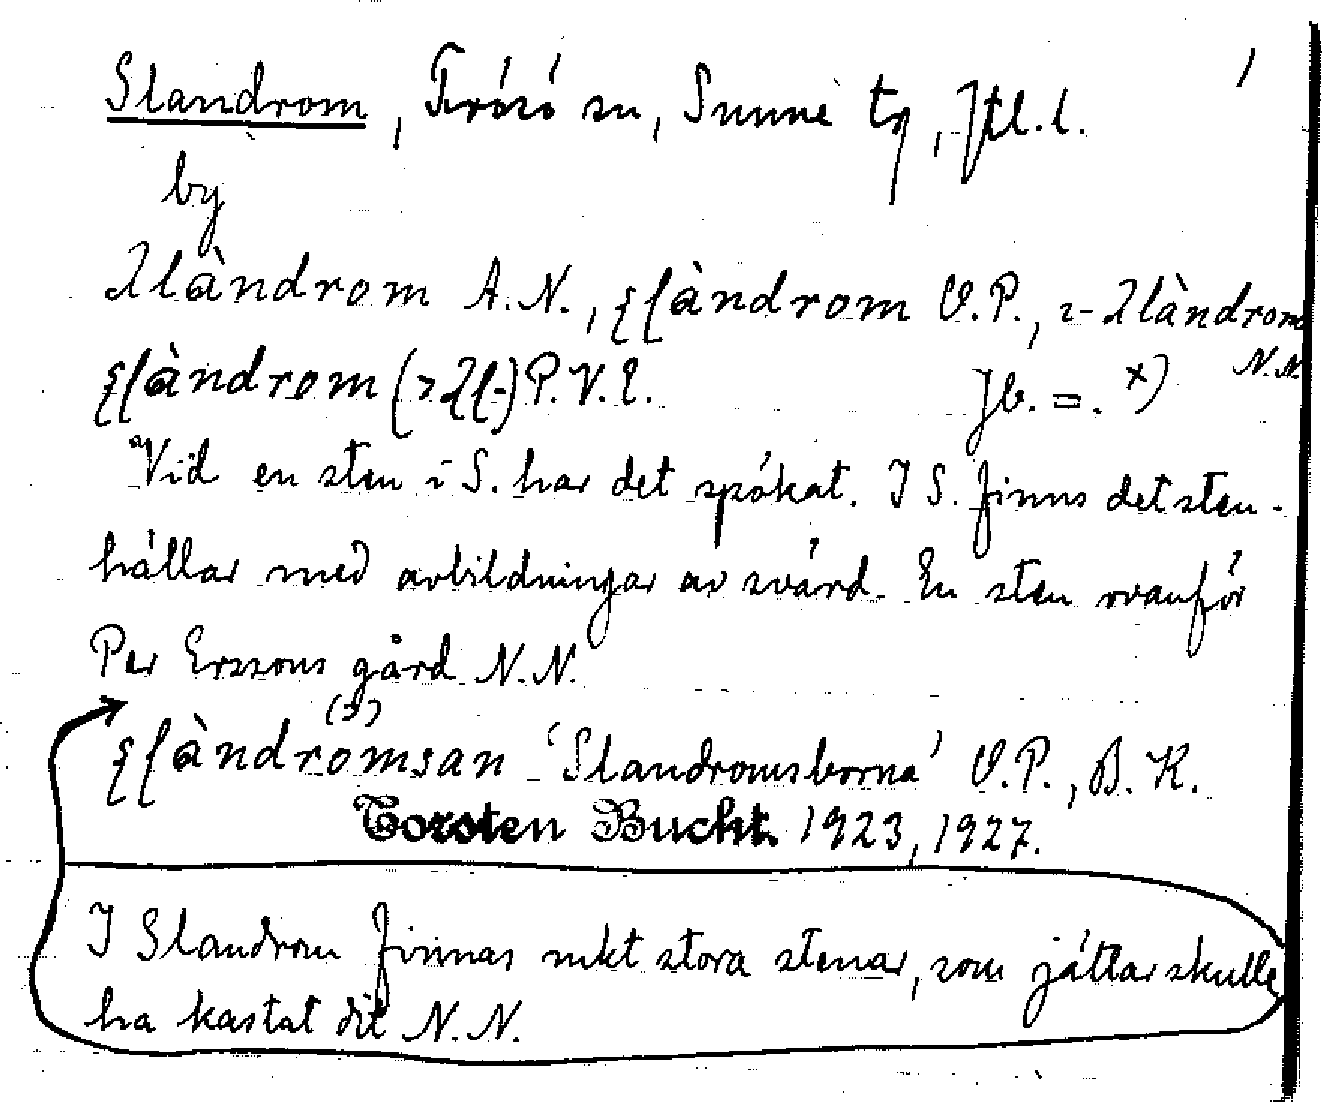 Slandrom, Frösö sn, Sunne tg, Jtl. l. 1
by
slàndrom A.N., ʂſàndrom O.P., i-slàndrom
N.N.
ʂſàndrom (>sſ-) P.V.E. Jb. =. x)
Vid en sten i S. har det spökat. I S. finns det sten-
hällar med avbildningar av svärd. En sten ovanför
Per Erssons gård N.N.
(ɔ)
ʂſàndromsan 'Slandromsborna' O.P., B.K.
Torsten Bucht. 1923, 1927.
I Slandrom finnas mkt stora stenar, som jättar skulle
ha kastat dit N.N.